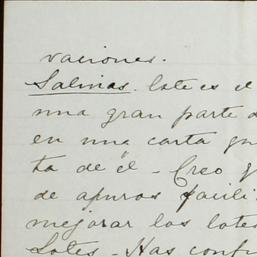 vaciones.
Salinas. Este es el
una gran parte d
en una carta qu
ta de él - Creo q
de apuros facili
mejorar los lotes
Lotes - Has conf